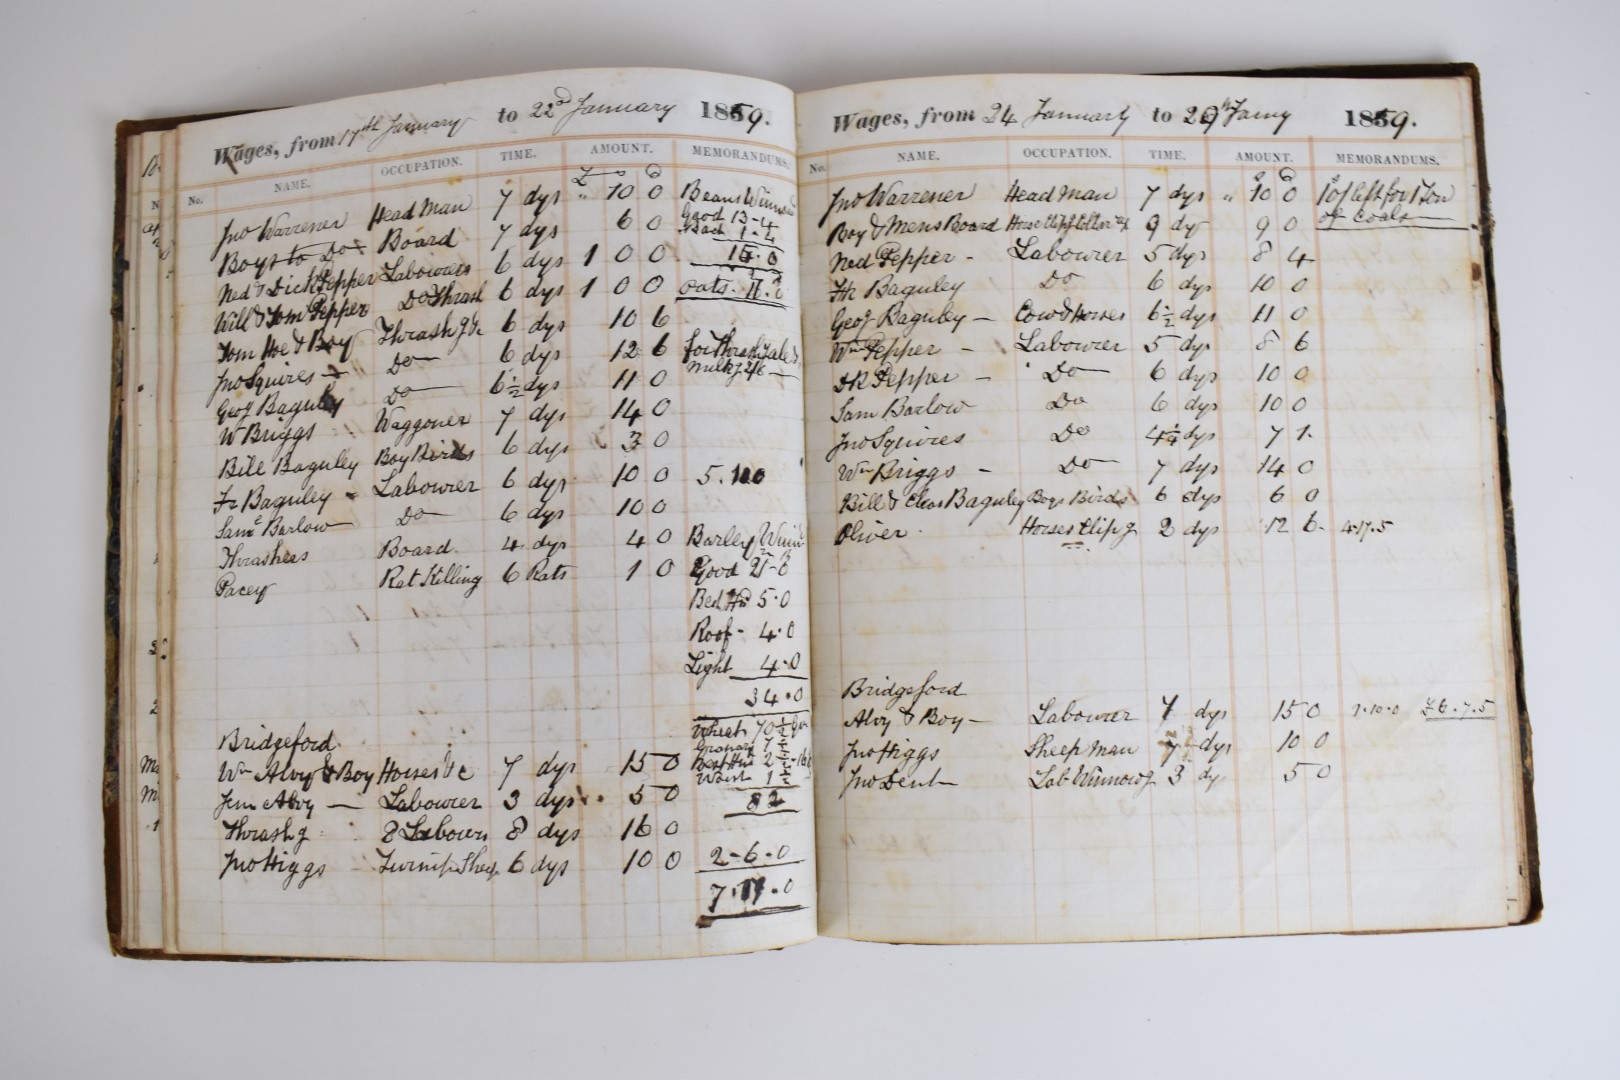 Wages, from 17th January to 22nd January 1859.
No. NAME. OCCUPATION. TIME. AMOUNT. MEMORANDUMS.
Jno Warrener Head Man 7 dys " 10 0 Beans
Boys to Do Board 7 dys 6 0 Good 13-4
Ned & Dick Pepper Labourers 6 dys 1 0 0 15.0
Will & Tom Pepper Do Thrash 6 dys 1 0 0 oats. 11.2
Tom Hoe & Boy Thrashg &c 6 dys 10 6
Jno Squires Do 6 dys 12 6
Geog Baguley Do 6½ dys 11 0
W Briggs Waggoner 7 dys 14 0
Bill Baguley Boy Birds 6 dys 3 0
Fr Baguley Labourer 6 dys 10 0
Saml Barlow Do 6 dys 10 0
Thrashers Board 4 dys 4 0 Barley
Pacey Rat Killing 6 Rats 1 0 Good
5.0
Roof - 4.0
Light 4.0
34.0
Wheat 70½
Bridgeford
Wm Alvy & Boy Horses &c 7 dys 15 0
Jem Alvy — Labourer 3 dys 5 0 82
Thrashg 8 Labours 8 dys 16 0
Jno Higgs Turnip Sheep 6 dys 10 0 2-6-0
Wages, from 24 January to 29th Jany 1859.
No. NAME. OCCUPATION. TIME. AMOUNT. MEMORANDUMS.
Jno Warrener Head Man 7 dys " 10 0 10/ left for 1 Ton
of Coals
Boy & Mens Board 9 dy 9 0
Ned Pepper - Labourer 5 dys 8 4
Fk Baguley Do 6 dys 10 0
Geog Baguley — Cow & Horses 6½ dys 11 0
Wm Pepper - Labourer 5 dys 8 6
Dk Pepper - Do 6 dys 10 0
Sam Barlow Do 6 dys 10 0
Jno Squires Do 4¼ dys 7 1
Wm Briggs - Do 7 dys 14 0
Bill & Chas Baguley Boys Birds 6 dys 6 0
Oliver Horses Clipg 2 dys 12 6 4.17.5
Bridgeford
Alvy & Boy - Labourer 7 dys 15 0 1.10.0 £6.7.5
Jno Higgs Sheep Man 7 dys 10 0
Jno Dent Lab Winnowg 3 dy 5 0